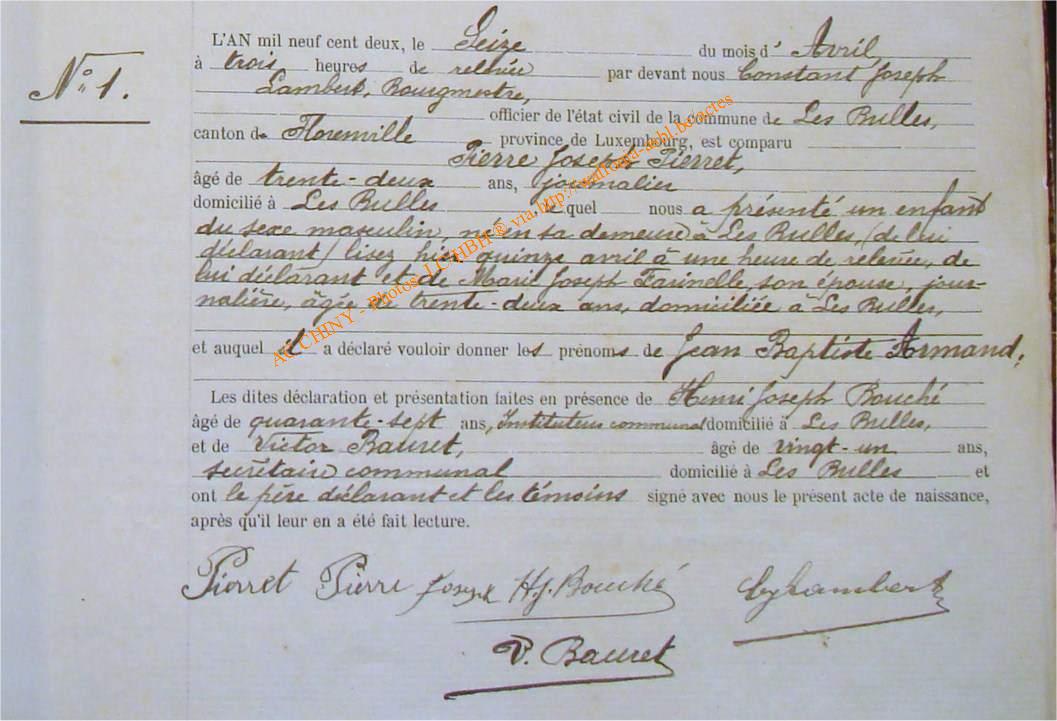 L'AN mil neuf cent deux, le Seize du mois d' Avril,
à trois heures de relevée par devant nous Constant Joseph
Nº 1.
Lambert, Bourgmestre,
officier de l'état civil de la commune de Les Bulles,
canton de Florenville province de Luxembourg, est comparu
Pierre Joseph Pierret,
âgé de trente-deux ans, journalier
domicilié à Les Bulles le quel nous a présenté un enfant
du sexe masculin né en sa demeure à Les Bulles, (de lui
déclarant) lisez hier quinze avril à une heure de relevée, de
lui déclarant et de Marie Joseph Farinelle, son épouse, jour-
nalière, âgée de trente-deux ans, domiciliée à Les Bulles,
et auquel il a déclaré vouloir donner les prénoms de Jean Baptiste Armand.
Les dites déclaration et présentation faites en présence de Henri Joseph Bouché
âgé de quarante-sept ans, Instituteur communal domicilié à Les Bulles,
et de Victor Bauret, âgé de vingt-un ans,
secrétaire communal domicilié à Les Bulles et
ont le père déclarant et les témoins signé avec nous le présent acte de naissance,
après qu'il leur en a été fait lecture.
Pierret Pierre Joseph H.J. Bouché Lambert
V. Bauret
AC CHINY - Photos LUHBH ® via http://